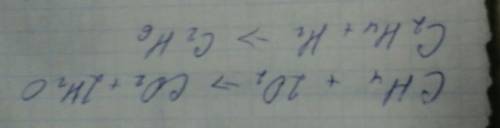 CH₄ + 2O₂ → CO₂ + 2H₂O
C₂H₄ + H₂ → C₂H₆